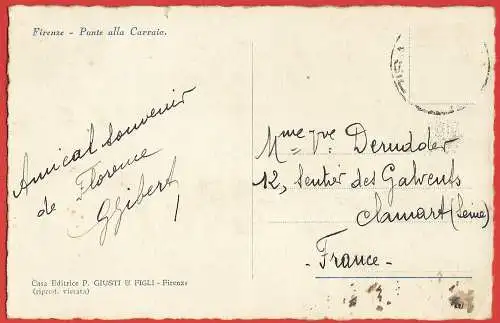 Firenze - Ponte alla Carraia.
Amical souvenir
de Florence
Mme Vve Derudder
12, Sentier des Galvents
Clamart (Seine)
- France -
Casa Editrice P. GIUSTI & FIGLI - Firenze
(riprod. vietata)